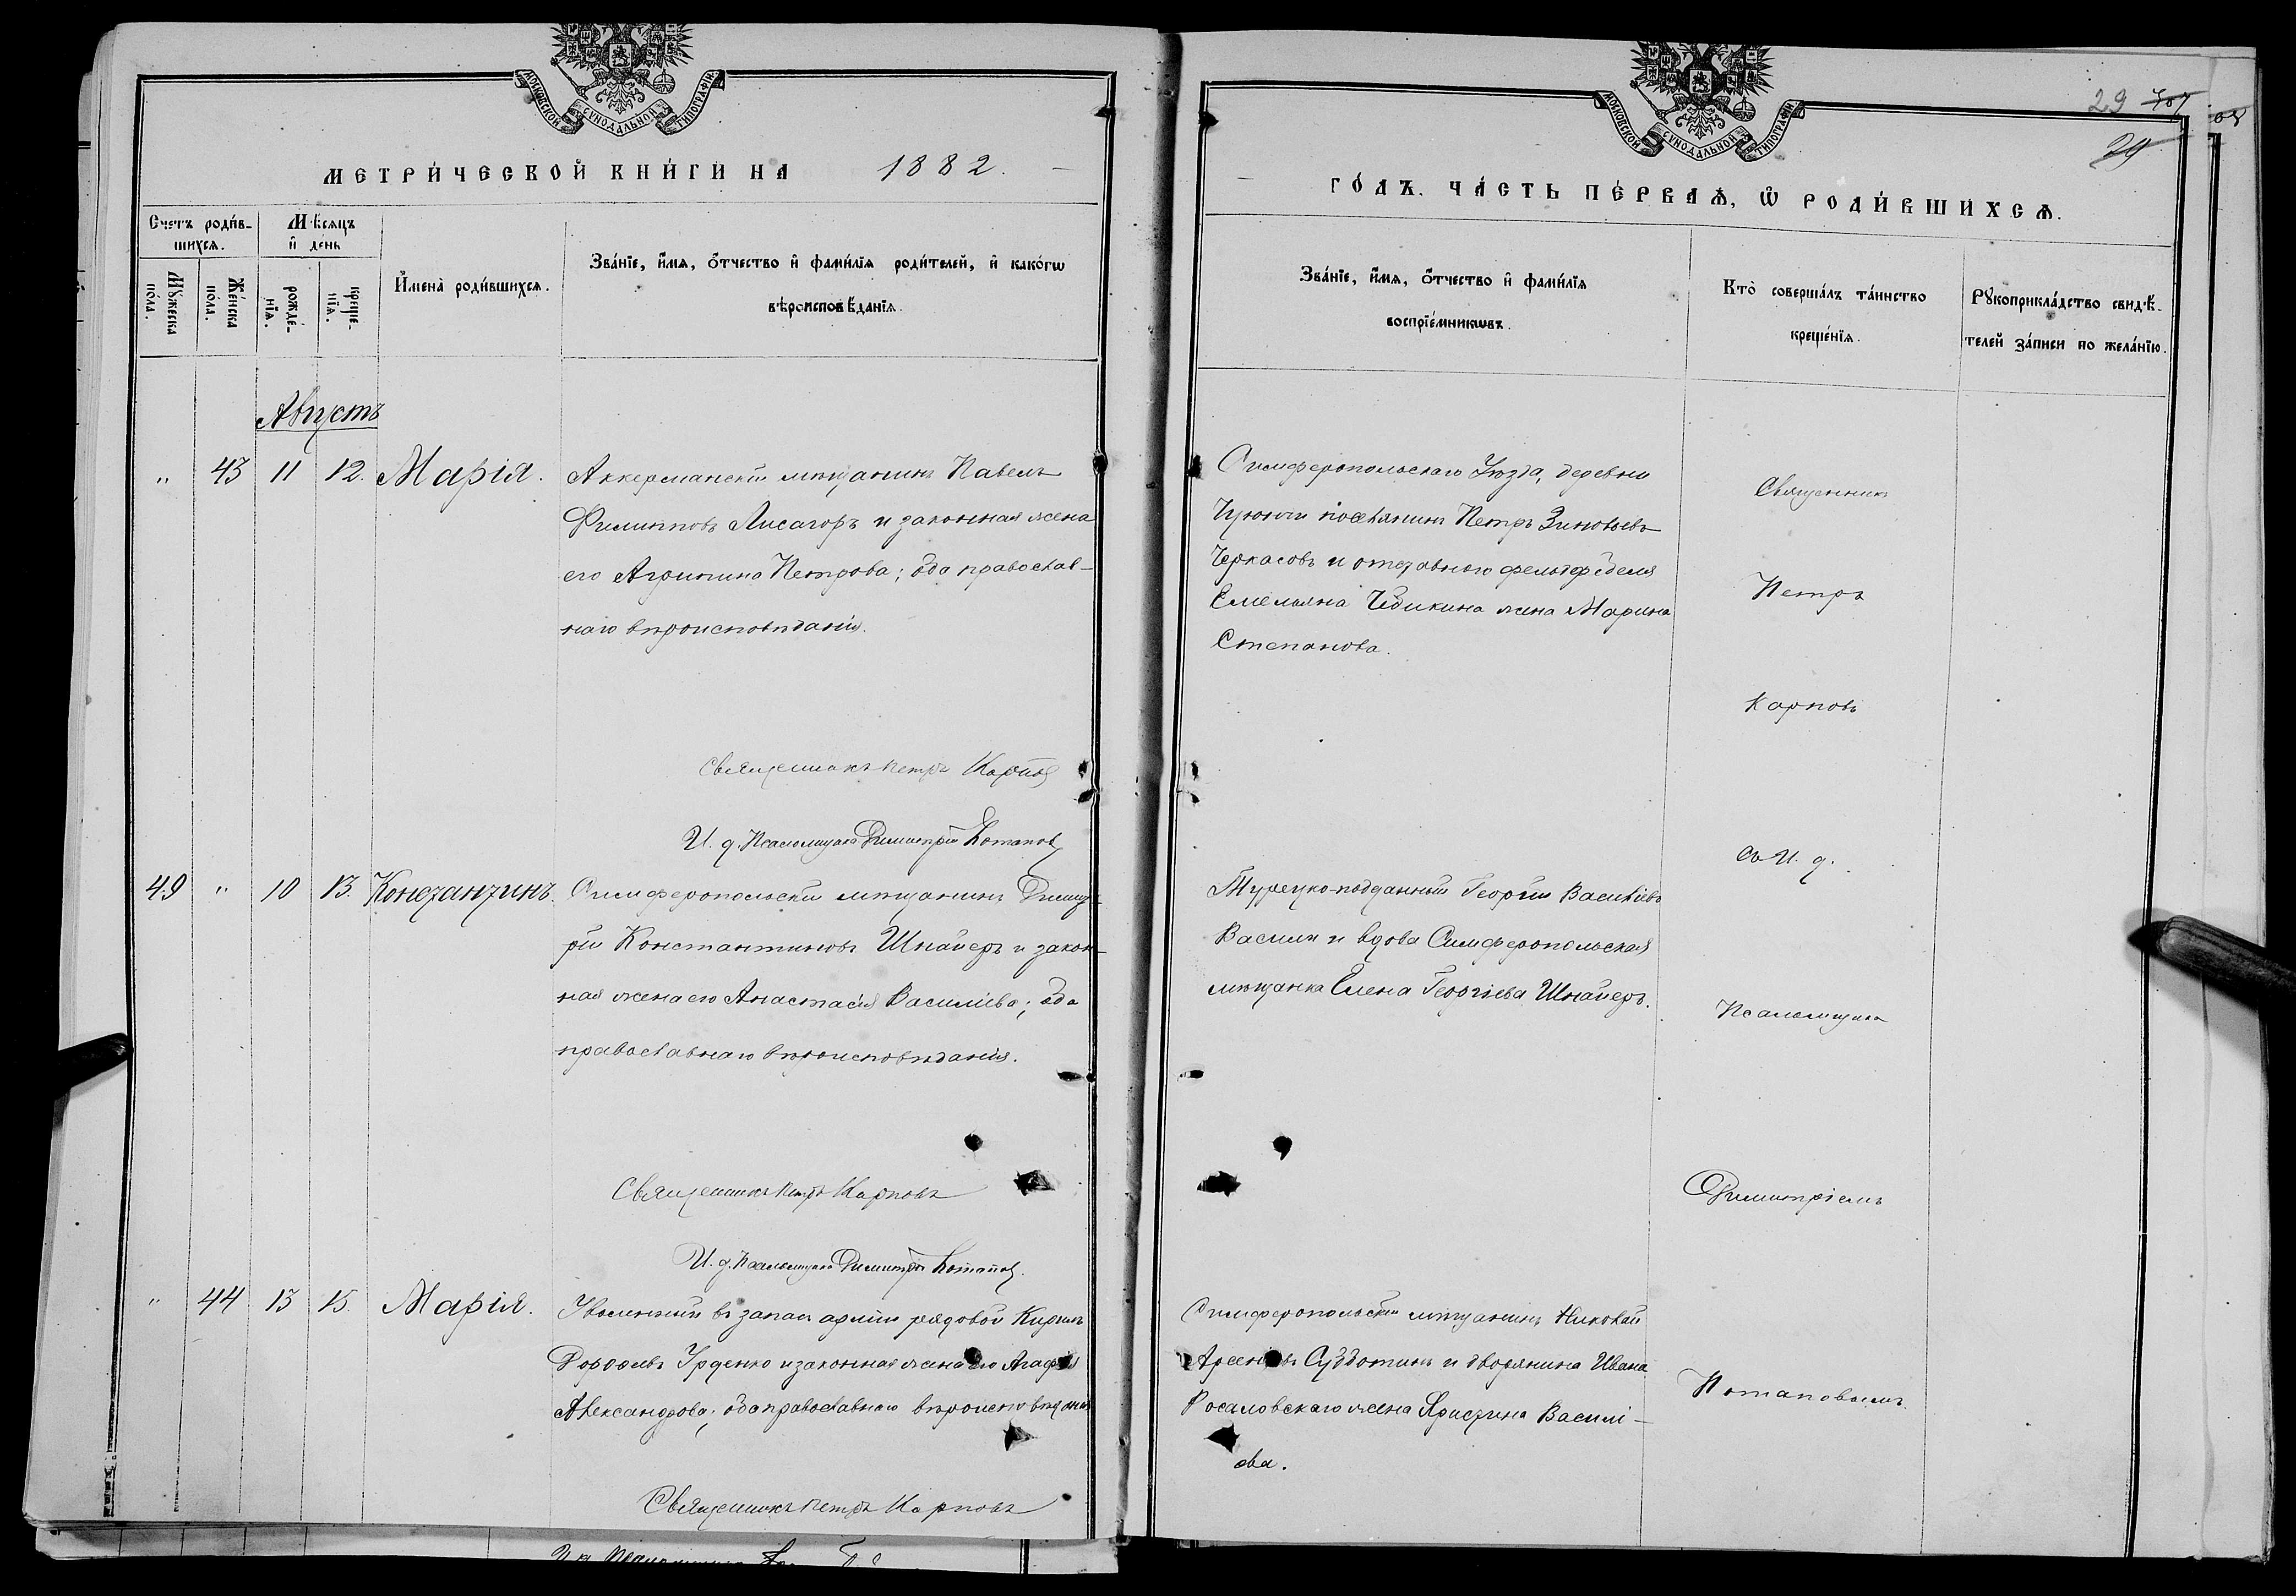 МОСКОВСКОЙ СУНОДАЛЬНОЙ ТИПОГРАФІИ
МЕТРИ́ЧЕСКОЙ КНИ́ГИ НА 1882.
Счетъ роди́в-
шихся.
Мѣсяцъ
и҆ де́нь
Мꙋ́жеска
по́ла.
Же́нска
по́ла.
рожде́-
нїя.
креще́-
нїя.
И҆мена̀ роди́вшихся.
Зва́нїе, и҆́мя, ѻ҆́тчество и҆ фами́лїя роди́телей, и҆ како́гѡ
вѣроисповѣ́данїя.
Августъ
" 43 11 12. Марія.
Аккерманскій мѣщанинъ Павелъ
Филипповъ Лисагоръ и законная жена
его Агрипина Петрова; оба православ-
наго вѣроисповѣданія.
Священникъ Петръ Карповъ
И. д. Псаломщика Димитрій Потаповъ
49 " 10 13. Константинъ.
Симферопольскій мѣщанинъ Димит-
рій Константиновъ Шнайеръ и закон-
ная жена его Анастасія Василіева; оба
православнаго вѣроисповѣданія.
Священникъ Петръ Карповъ
И. д. Псаломщика Димитрій Потаповъ.
" 44 13 15. Марія.
Уволенный въ запасъ арміи рядовой Кирилъ
Дорофеевъ Урденко и законная жена его Агафія
Александрова; оба православнаго вѣроисповѣданія
Священникъ Петръ Карповъ
МОСКОВСКОЙ СУНОДАЛЬНОЙ ТИПОГРАФІИ
29
29
ГО́ДЪ. ЧА́СТЬ ПЕ́РВАѦ, Ѡ҆ РОДИ́ВШИХСѦ.
Зва́нїе, и҆́мя, ѻ҆́тчество и҆ фами́лїя
воспрїе́мникѡвъ.
Кто̀ соверша́лъ та́инство
креще́нїя.
Рꙋкоприкла́дство свидѣ́-
телей за́писи по жела́нїю.
Симферопольскаго Уѣзда, деревни
поселянинъ Петръ Зиновьевъ
Черкасовъ и отставного фельдфебеля
Емельяна жена Марина
Степанова.
Священникъ
Петръ
Карповъ
съ И. д.
Псаломщика
Димитріемъ
Потаповымъ.
Турецко-подданный Георгій Василіевъ
Васили и вдова Симферопольская
мѣщанка Елена Георгіева Шнайеръ.
Симферопольскій мѣщанинъ Николай
Арсеньевъ Субботинъ и дворянина Ивана
Росаловскаго жена Христина Василі-
ева.